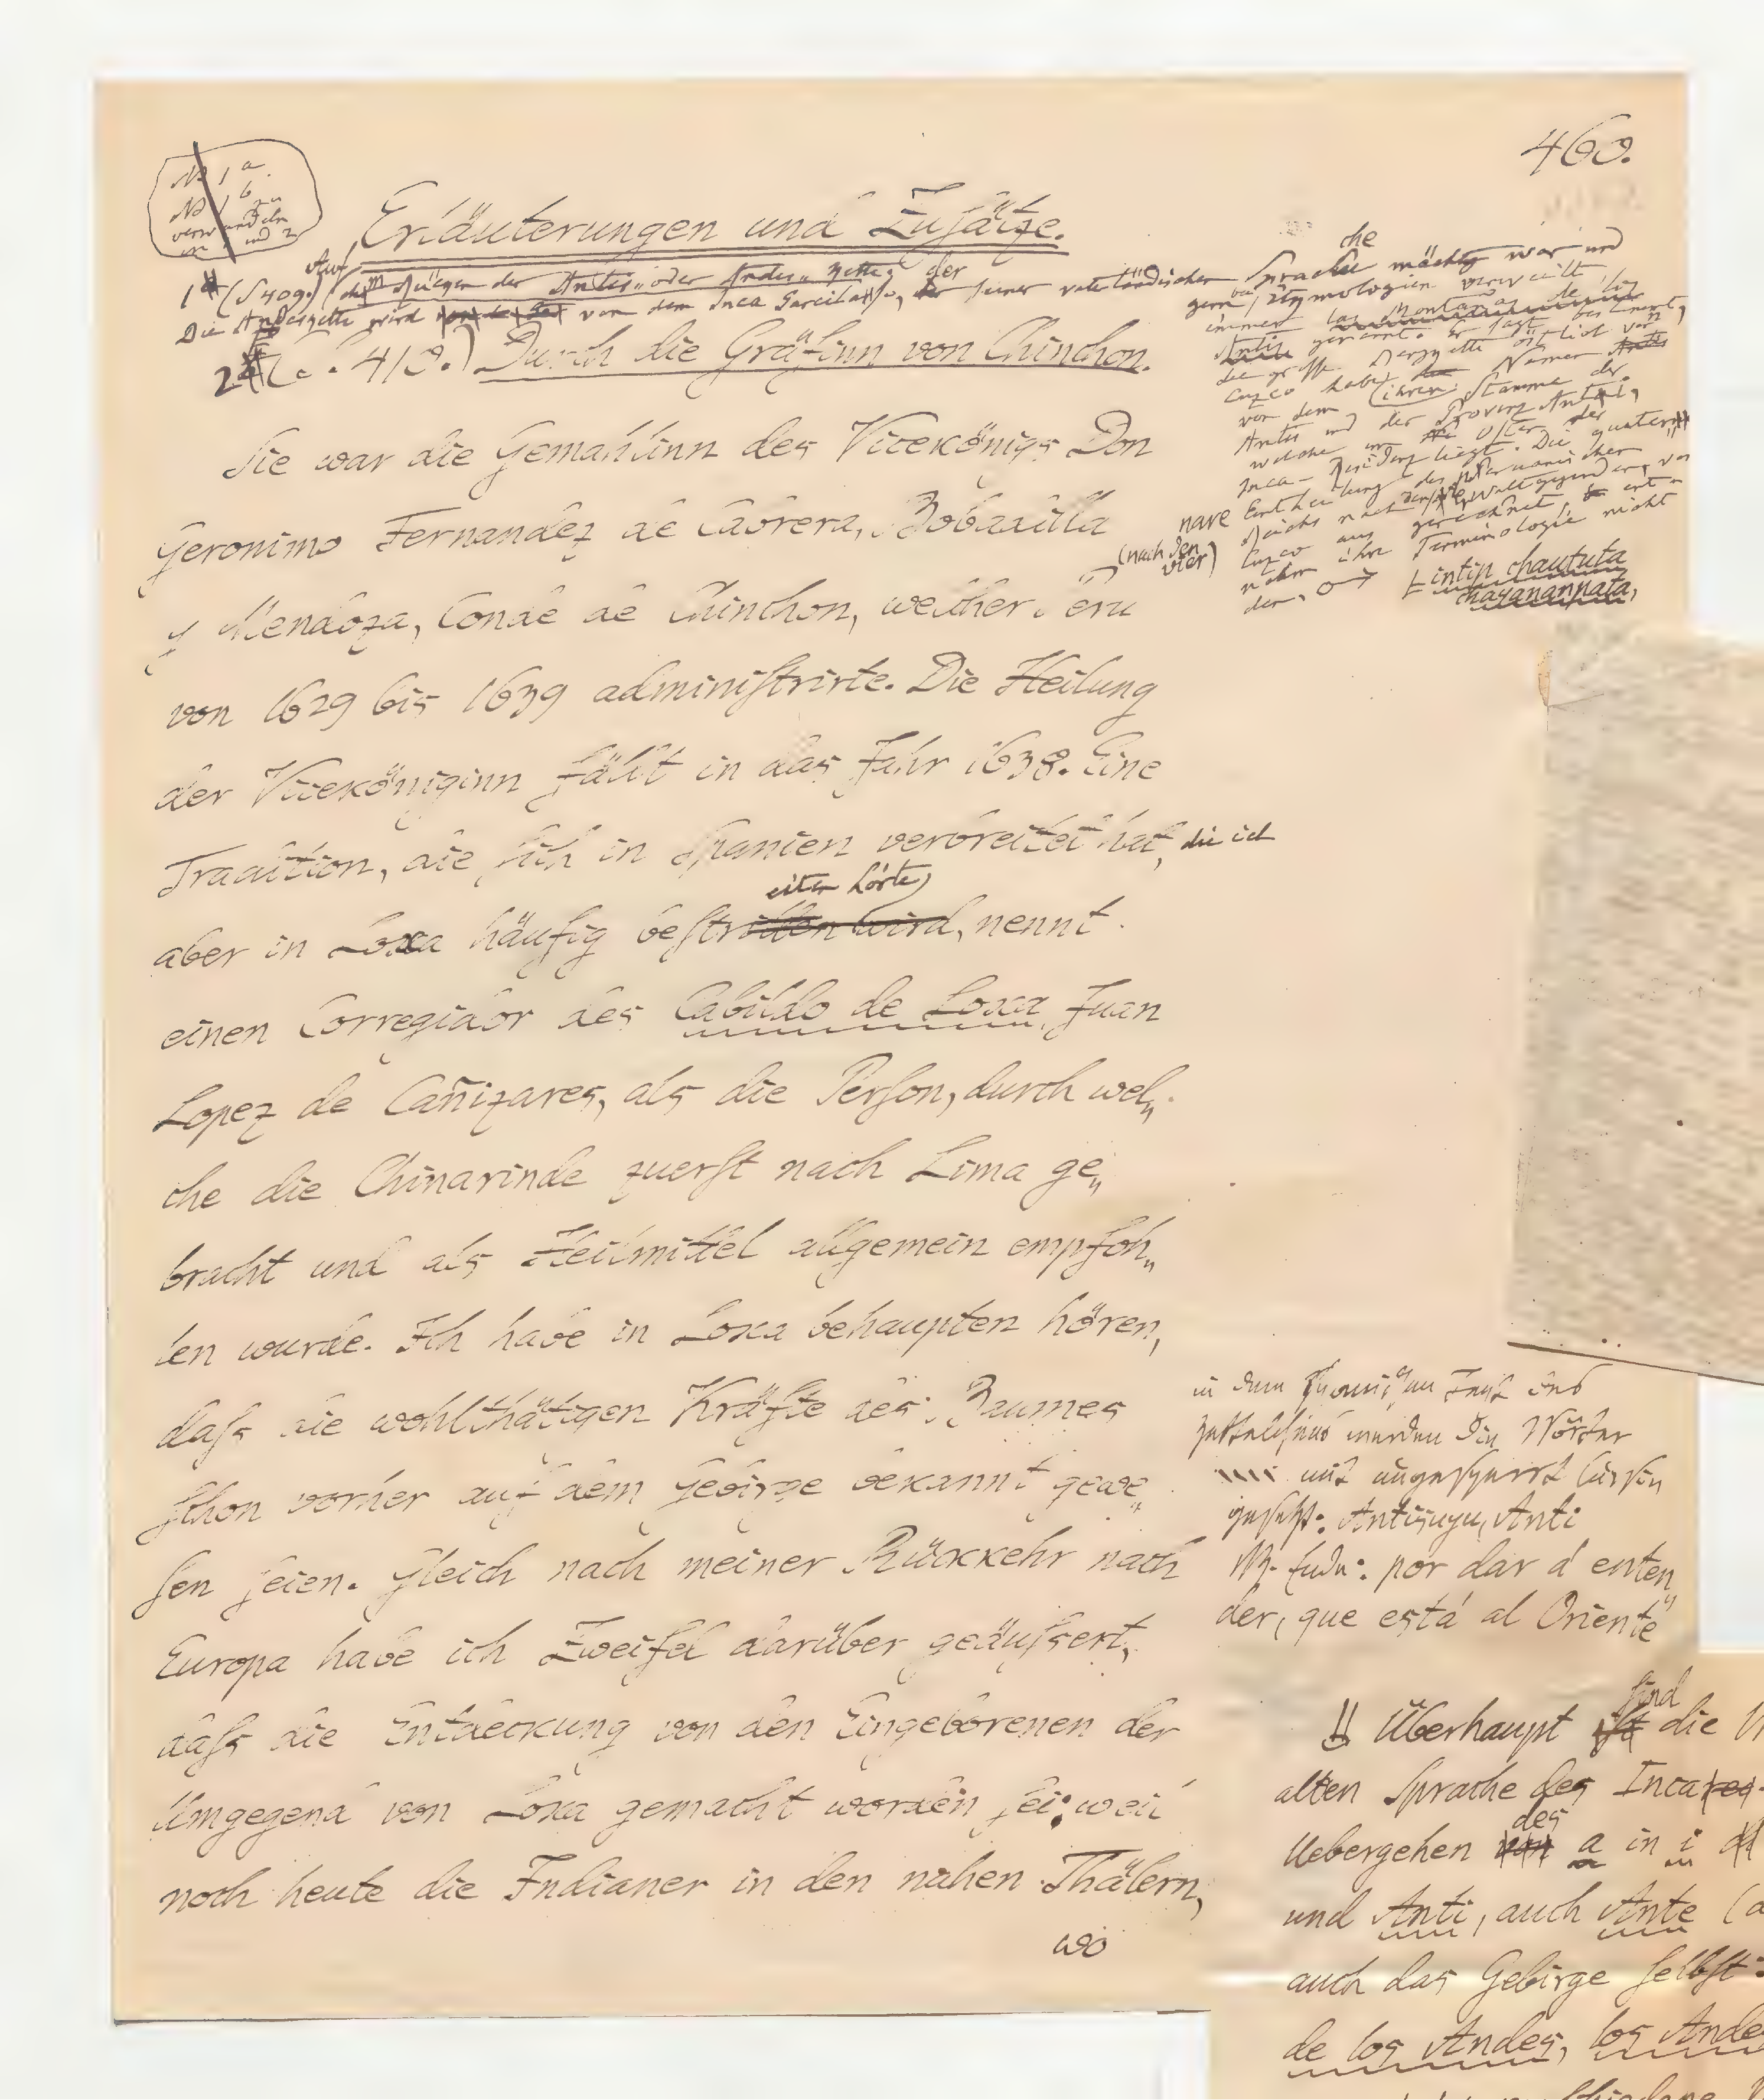 460.
No 1 a.
No 1 b zu
verwandeln
in 1 und 2
Erläuterungen und Zusätze.
1 (S. 409.) Auf dem Rücken der Antis- oder Andes-Kette
Die Andeskette wird von dem Inca Garcilasso, der seiner vaterländischen Sprache mächtig war und
gern bei Etymologien verweilt
immer las Montañas de los
Antis genannt. Er sagt bestimmt,
die grosse Bergkette östlich von
Cuzco habe ihren Namen
von dem Stamme der
Antis und der Provinz Anti,
welche im Osten der
Inca-Residenz liegt. Die quater-
nare Eintheilung des peruanischen
Reichs nach den vier Weltgegenden, von
Cuzco aus gerechnet, ent-
nahm ihre Terminologie nicht
(nach den
vier)
der,
Lintin chaututa
chayanannata,
2 (S. 410.) Durch die Gräfinn von Chinchon.
Sie war die Gemahlinn des Vicekönigs Don
Geronimo Fernandez de Cabrera, Bobadilla
y Mendoza, Conde de Chinchon, welcher Peru
von 1629 bis 1639 administrirte. Die Heilung
der Viceköniginn fällt in das Jahr 1638. Eine
Tradition, die sich in Spanien verbreitet hat, die ich
aber in Loxa häufig bestreiten hörte, nennt
einen Corregidor des Cabildo de Loxa, Juan
Lopez de Cañizares, als die Person, durch wel„
che die Chinarinde zuerst nach Lima ge„
bracht und als Heilmittel allgemein empfoh„
len wurde. Ich habe in Loxa behaupten hören,
dass die wohlthätigen Kräfte des Baumes
schon vorher auf dem Gebirge bekannt gewe„
sen seien. Gleich nach meiner Rückkehr nach
Europa habe ich Zweifel darüber geäussert,
dass die Entdeckung von den Eingeborenen der
Umgegend von Loxa gemacht worden sei; weil
noch heute die Indianer in den nahen Thälern,
wo
in dem Text des
werden die Wörter
mit
gesetzt: Antisuyu, Anti
M. Ende: por dar á enten„
der, que está al Oriente
Überhaupt sind die
alten Sprache des Inca
Uebergehen des a in i
und Anti, auch Ante
auch das Gebirge selbst:
de los Andes, los Andes